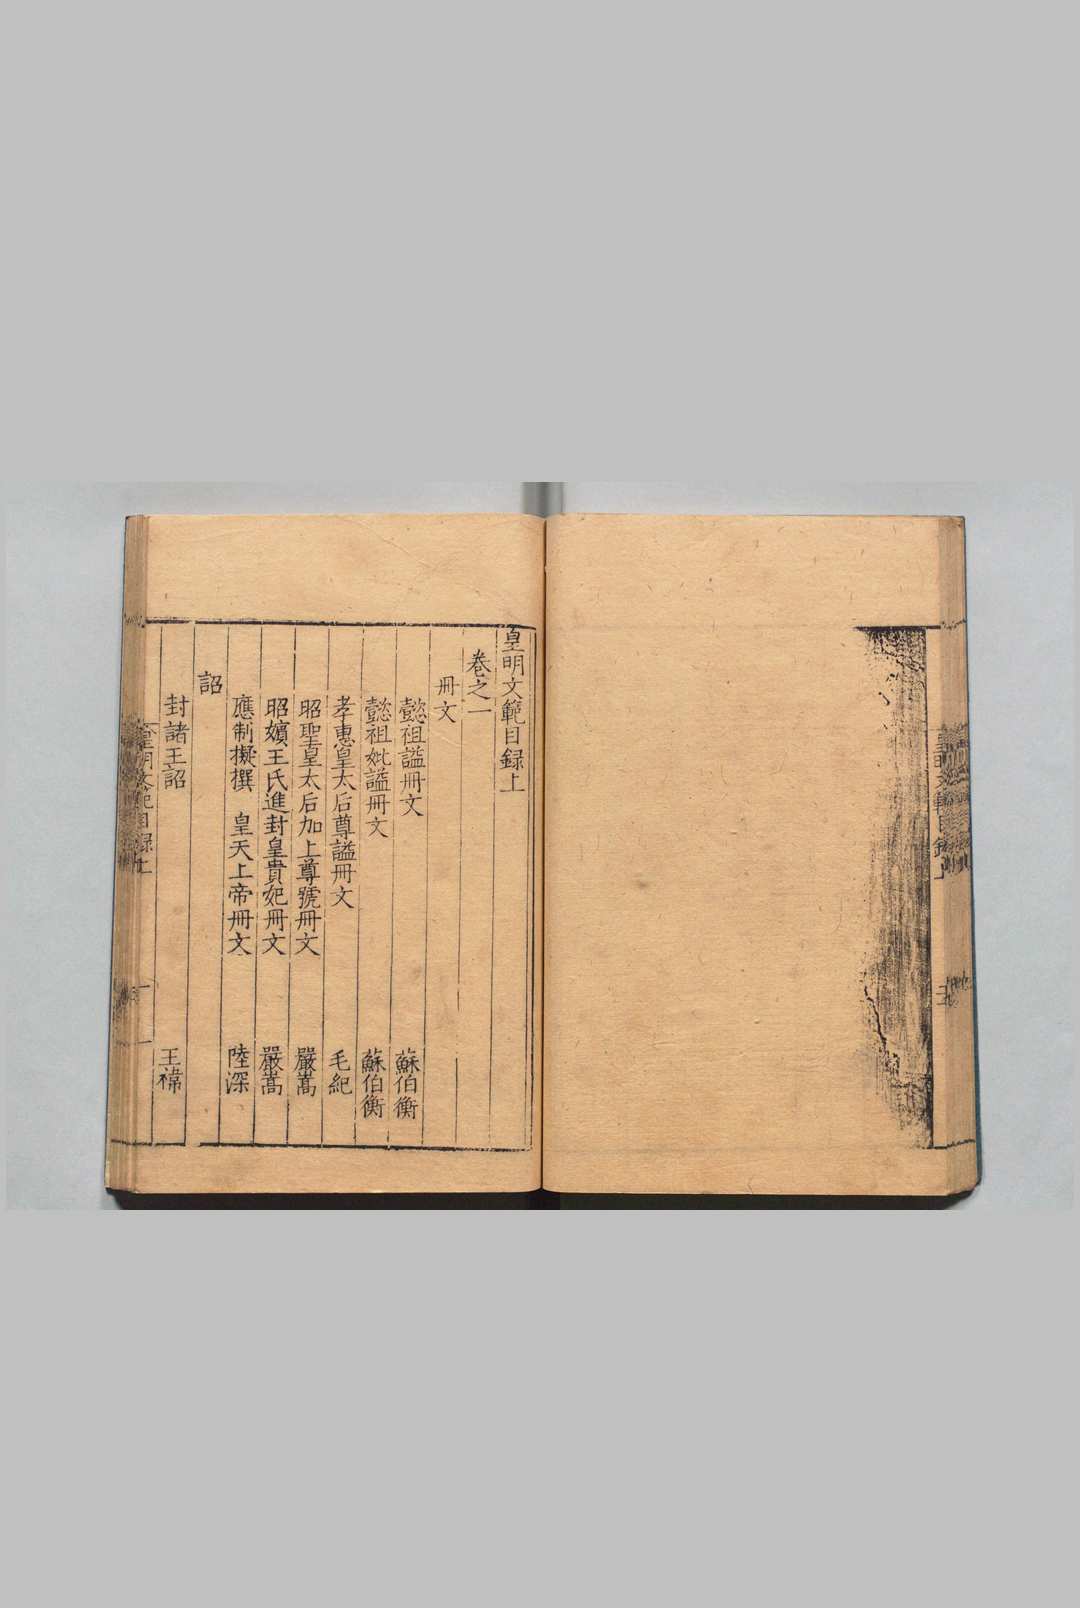 皇明文範目録上
卷之一
冊文
懿祖謚冊文 蘇伯衡
懿祖妣謚冊文 蘇伯衡
孝惠皇太后尊謚冊文 毛紀
昭聖皇太后加上尊號冊文 嚴嵩
昭嬪王氏進封皇貴妃冊文 嚴嵩
應制擬撰 皇天上帝冊文 陸深
詔
封諸王詔 王褘
皇明文範目録上 一